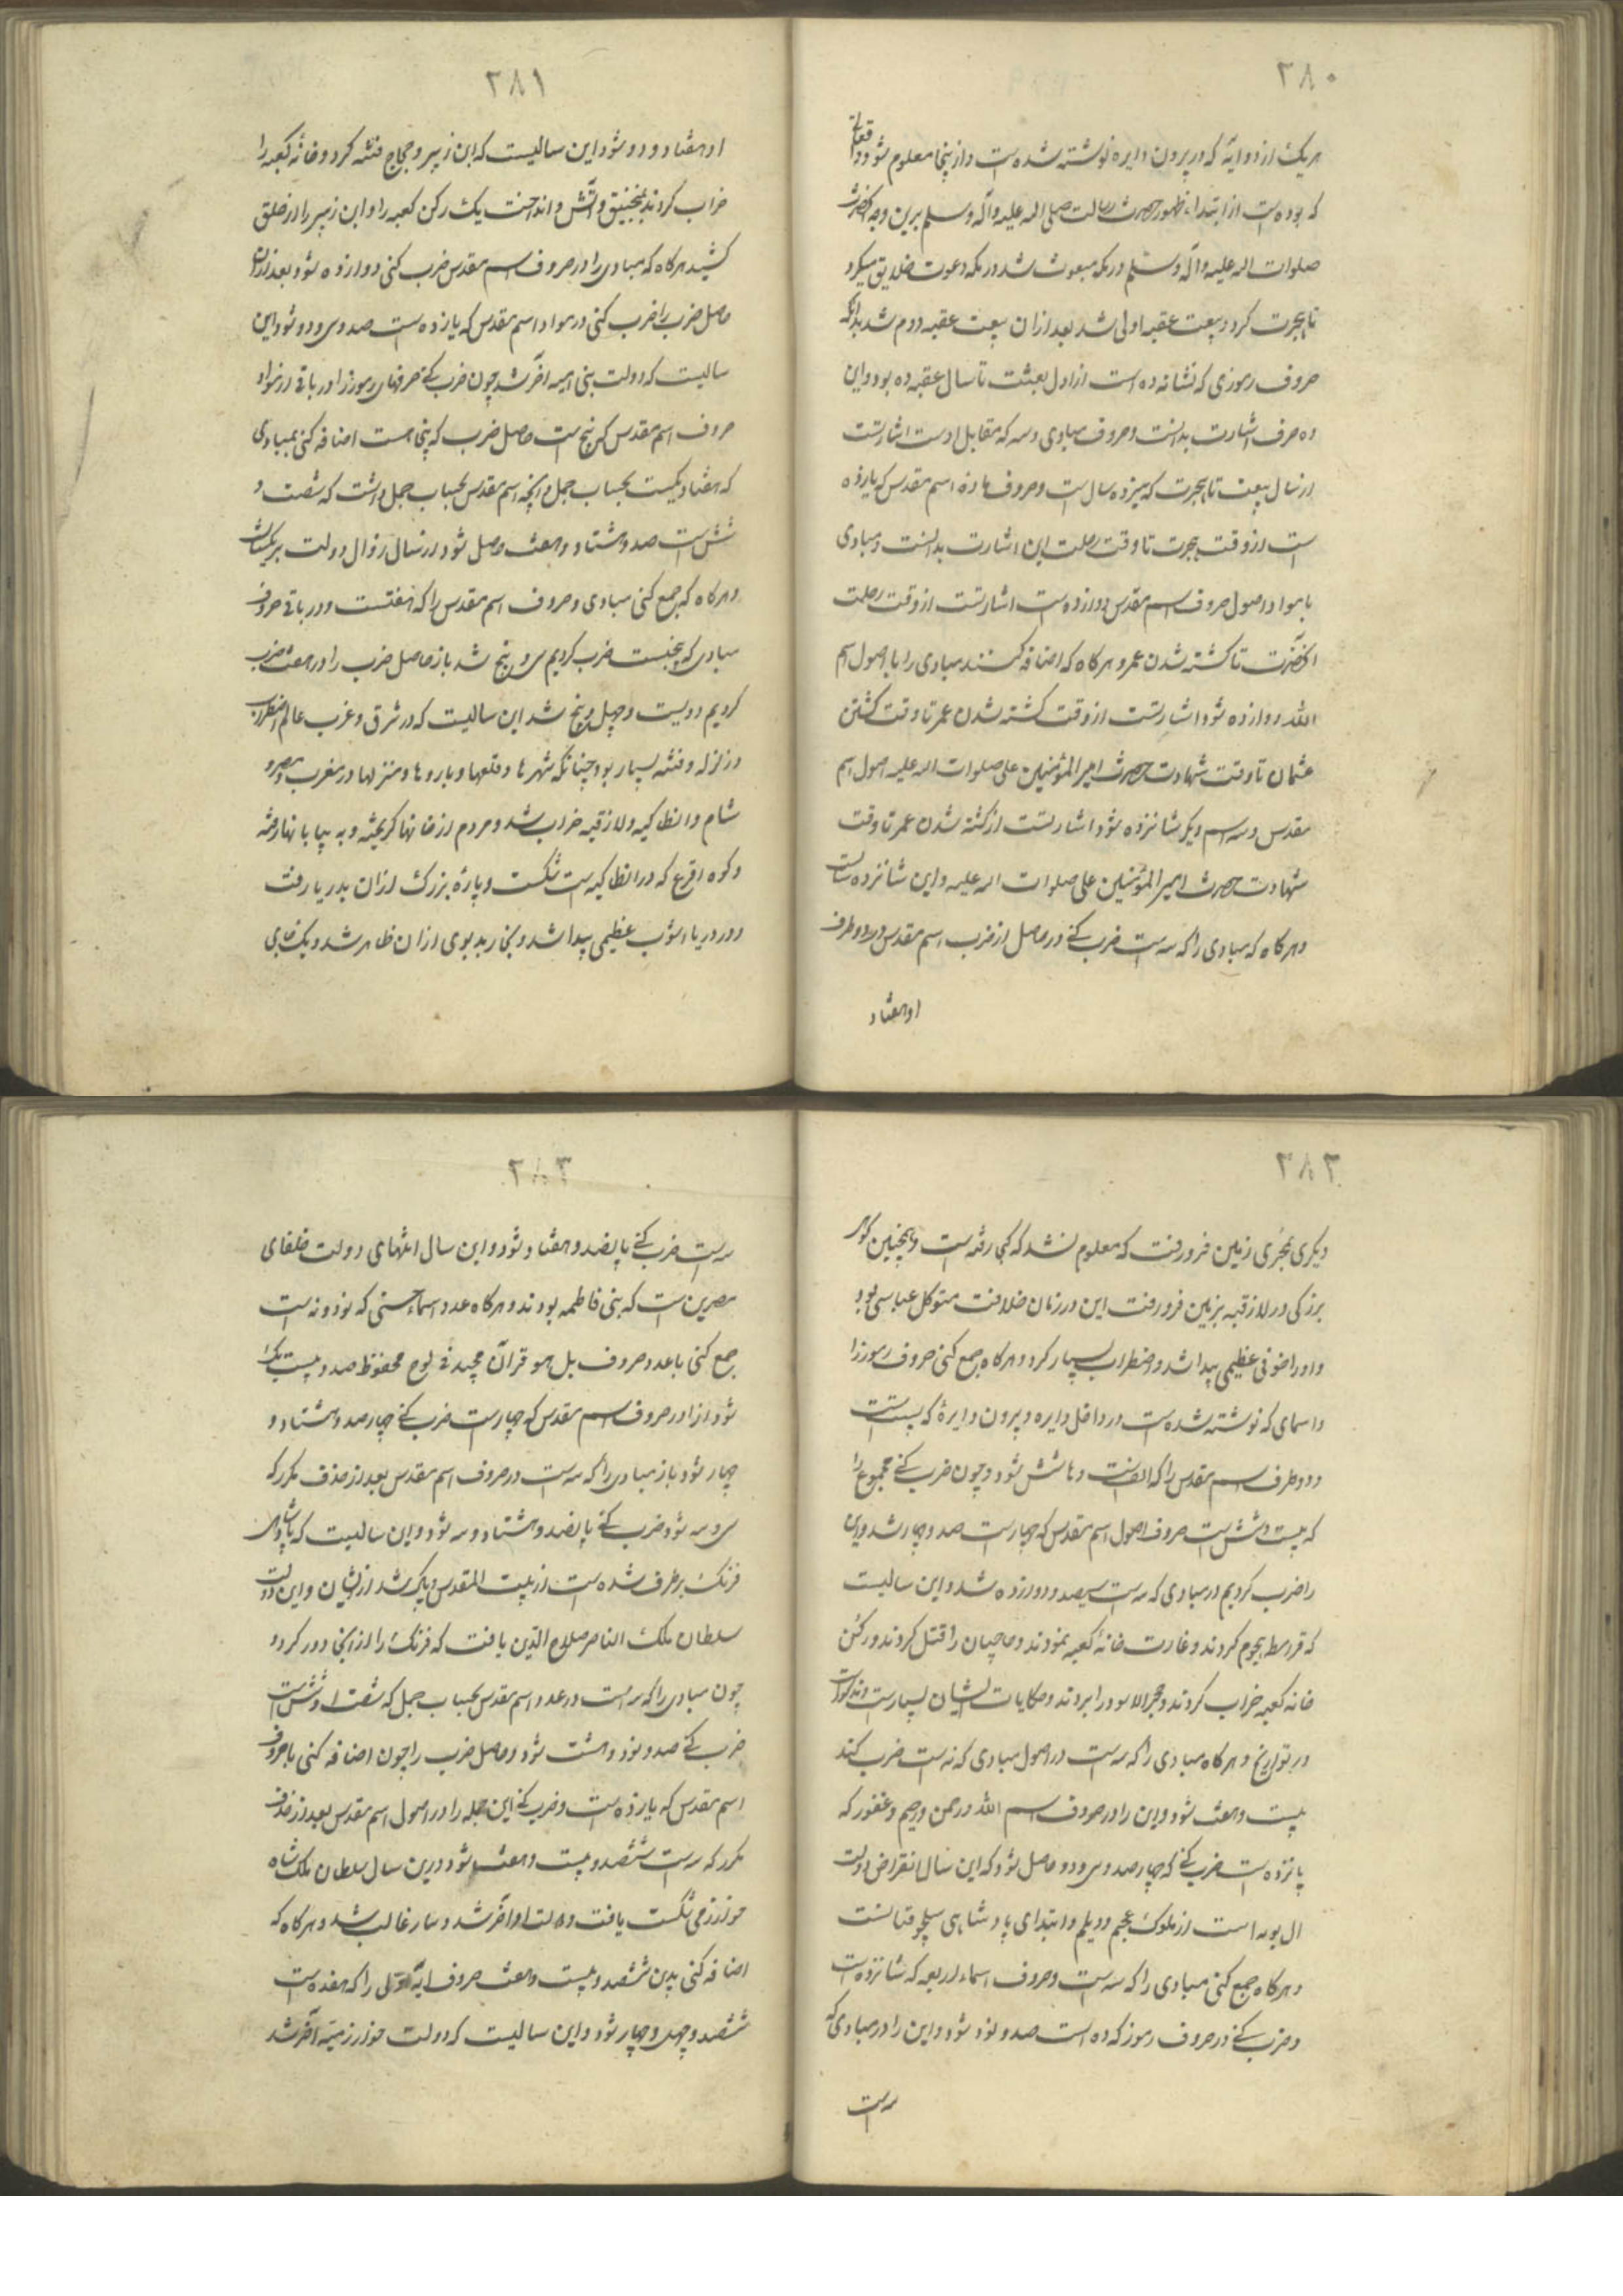 ۲۸۰
هر یک از دو آیه که در بیرون دایره نوشته شده است و از اینجا معلوم شود و واقعاتی
که بوده است از ابتداء ظهور حضرت رسالت صلی الله علیه وآله وسلم برین وجه آنحضرت
صلوات الله علیه وآله وسلم در مکه مبعوث شد در مکه دعوت خلایق میکرد
تا هجرت کرد و بیعت عقبه اولی شد بعد از ان بیعت عقبه دوم شد بدانکه
حروف رموزی که نشانه ده است از اول بعثت تا سال عقبه ده بود و این
ده حرف اشارت بدانست و حروف مبادی و سه که مقابل اوست اشارتست
از سال بیعت تا هجرت که سیزده سال است و حروف ماده اسم مقدس که یازده
است از وقت هجرت تا وقت رحلت این اشارت بدانست و مبادی
با مواد اصول حروف اسم مقدس دوازده است اشارتست از وقت رحلت
آنحضرت تا کشته شدن عمر و هرکاه که اضافه کنند مبادی را با اصول اسم
الله دوازده شود اشارتست از وقت کشته شدن عمر تا وقت کشتن
عثمان تا وقت شهادت حضرت امیر المؤمنین علی صلوات الله علیه اصول اسم
مقدس و سه اسم دیکر شانزده شود اشارتست از کشته شدن عمر تا وقت
شهادت حضرت امیر المؤمنین علی صلوات الله علیه و این شانزده سالست
و هرکاه که مبادی را که سه است ضرب کنی در حاصل از ضرب اسم مقدس در دو طرف
او هفتاد
۲۸۱
او هفتاد و دو شود این سالیست که ابن زبیر و حجاج فتنه کرد و خانه کعبه را
خراب کردند بمنجنیق و آتش و انداخت یک رکن کعبه را و ابن زبیر را از حلق
کشید هرکاه که مبادی را در حروف اسم مقدس ضرب کنی دوازده شود بعد از ان
حاصل ضرب را ضرب کنی در مواد اسم مقدس که یازده است صد و سی و دو شود این
سالیست که دولت بنی امیه آخر شد چون ضرب کنی حرفهای رموز را در باقی از مواد
حروف اسم مقدس که پنج است حاصل ضرب که پنجاهست اضافه کنی بمبادی
که هفتاد یکیست بحساب جمل و آنچه اسم مقدس بحساب جمل داشت که شصت و
شش است صد و هشتاد و هفت حاصل شود در سال زوال دولت برمکیانست
و هرکاه که جمع کنی مبادی و حروف اسم مقدس را که هفتست و در باقی حروف
مبادی که پنجست ضرب کردیم سی و پنج شد باز حاصل ضرب را در هفت ضرب
کردیم دویست و چهل و پنج شد این سالیست که در شرق و غرب عالم اضطراب
و زلزله و فتنه بسیار بود چنانکه شهرها و قلعها و باروها و منزلها در مغرب و مصر و
شام و انطاکیه و لازقیه خراب شد و مردم از خانها کریخته و به بیابانها رفته
و کوه اقرع که در انطاکیه است شکست و پارهٔ بزرک از ان بدریا رفت
و در دریا آشوب عظیمی پیدا شد و بخار بدبوی از ان ظاهر شد و یک
۲۸۲
دیکری زمین فرو رفت که معلوم نشد که کجا رفته است و همچنین کوه
بزرکی در لازقیه بزمین فرو رفت این در زمان خلافت متوکل عباسی بود
و او را خوفی عظیمی پیدا شد و اضطراب بسیار کرد و هرکاه جمع کنی حروف رموز را
و اسمای که نوشته شده است در داخل دایره و بیرون دایرهٔ که بیست است
و دو طرف اسم مقدس را که الفست و ها شش شود و چون ضرب کنی مجموع را
که بیست و شش است حروف اصول اسم مقدس که چهارست صد و چهار شد و این
را ضرب کردیم در مبادی که سه است سیصد و دوازده شد و این سالیست
که قرامطه هجوم کردند و غارت خانهٔ کعبه نمودند و حاجیان را قتل کردند و رکن
خانه کعبه خراب کردند و حجر الاسود را بردند و حکایات ایشان بسیارست و مذکورست
در تواریخ و هرکاه مبادی را که سه است در اصول مبادی که نه است ضرب کند
بیست و هفت شود و این را در حروف اسم الله و رحمن و رحیم و غفور که
پانزده است ضرب کنی که چهارصد و سی و دو حاصل شود که این سال انقراض دولت
ال بویه است از ملوک عجم و دیلم و ابتدای پادشاهی سلجوقیانست
و هرکاه جمع کنی مبادی را که سه است و حروف اسماء اربعه که شانزده است
و ضرب کنی در حروف رموز که ده است صد و نود شود و این را در مبادی که
سه است
۲۸۳
سه است ضرب کنی پانصد و هفتاد شود و این سال انتهای دولت خلفای
مصرین است که بنی فاطمه بودند و هرکاه عدد اسماء حسنی که نود و نه است
جمع کنی با عدد حروف بل هو قرآن مجید فی لوح محفوظ صد و بیست یک
شود از او در حروف اسم مقدس که چهارست ضرب کنی چهارصد و هشتاد و
چهار شود باز مبادی را که سه است در حروف اسم مقدس بعد از حذف مکرر که
سی و سه شود ضرب کنی پانصد و هشتاد و سه شود و این سالیست که پادشاهی
فرنک برطرف شده است از بیت المقدس و پاک شد از ایشان و این دولت
سلطان ملک الناصر صلاح الدین یافت که فرنک را از انجا دور کرد و
چون مبادی را که سه است در عدد اسم مقدس بحساب جمل که شصت و شش است
ضرب کنی صد و نود و هشت شود و حاصل ضرب را چون اضافه کنی با حروف
اسم مقدس که یازده است و ضرب کنی این جمله را در اصول اسم مقدس بعد از حذف
مکرر که سه است ششصد و بیست و هفت شود درین سال سلطان ملک شاه
خوارزمی شکست یافت و دولت او آخر شد و تتار غالب شد و هرکاه که
اضافه کنی بدین ششصد و بیست و هفت حروف آیه اولی را که هفده است
ششصد و چهل و چهار شود و این سالیست که دولت خوارزمیه آخر شد